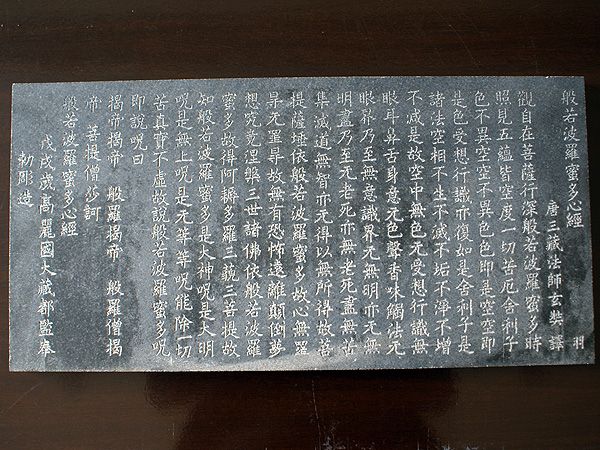 般若波羅蜜多心經 羽
唐三藏法師玄奘譯
觀自在菩薩行深般若波羅蜜多時
照見五蘊皆空度一切苦厄舍利子
色不異空空不異色色即是空空即
是色受想行識亦復如是舍利子是
諸法空相不生不滅不垢不淨不增
不減是故空中無色无受想行識無
眼耳鼻舌身意无色聲香味觸法无
眼界乃至無意識界无無明亦无無
明盡乃至无老死亦無老死盡無苦
集滅道無智亦无得以無所得故菩
提薩埵依般若波羅蜜多故心無罣
㝵无罣㝵故無有恐怖遠離顛倒夢
想究竟涅槃三世諸佛依般若波羅
蜜多故得阿耨多羅三藐三菩提故
知般若波羅蜜多是大神呪是大明
呪是無上呪是无等等呪能除一切
苦真實不虛故說般若波羅蜜多呪
即說呪曰
揭帝揭帝 般羅揭帝 般羅僧揭
帝 菩提僧莎訶
般若波羅蜜多心經
戊戌歲高麗國大藏都監奉
勑彫造